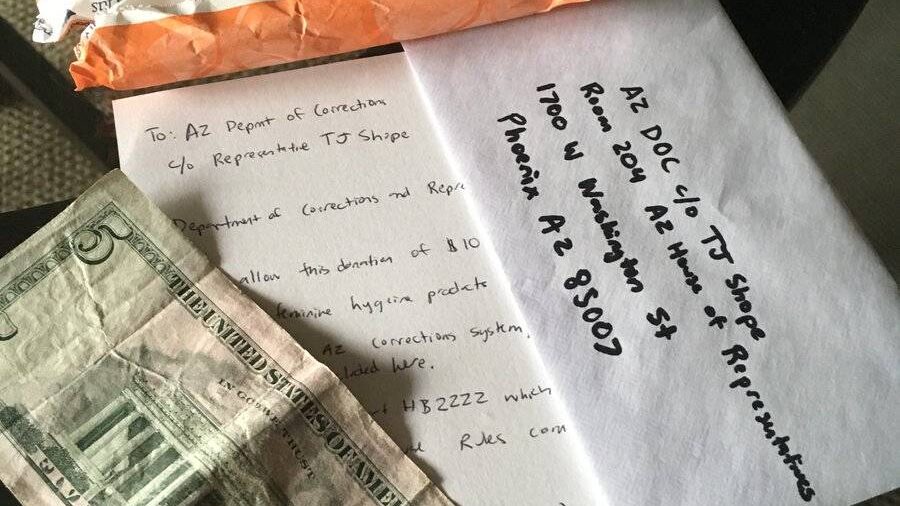 To: AZ Depmt of Corrections
c/o Representative TJ Shope
Department of Corrections and Repre
allow this donation of $10
feminine hygiene products
AZ corrections system,
luded here.
HB2222 which
Rules com
AZ DOC c/o TJ Shope
Room 204 AZ House of Representatives
1700 W Washington St
Phoenix AZ 85007
5
THE UNITED STATES OF AMER
IN GOD WE TRUST